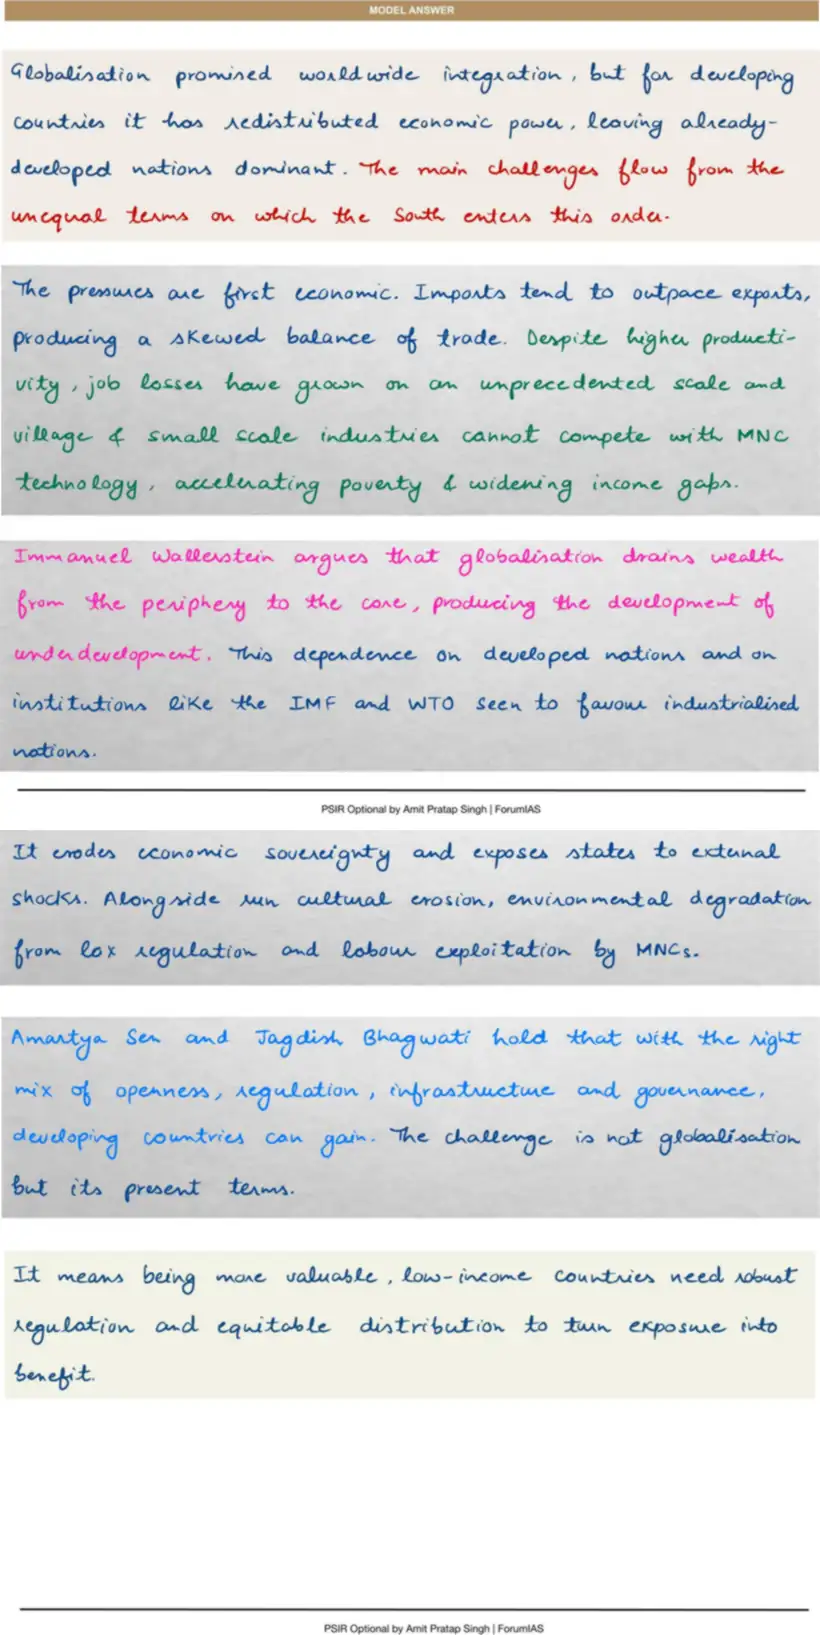 MODEL ANSWER
Globalisation promised worldwide integration, but for developing
countries it has redistributed economic power, leaving already-
developed nations dominant. The main challenges flow from the
unequal terms on which the South enters this order.
The pressures are first economic. Imports tend to outpace exports,
producing a skewed balance of trade. Despite higher producti-
vity, job losses have grown on an unprecedented scale and
village & small scale industries cannot compete with MNC
technology, accelerating poverty & widening income gaps.
Immanuel Wallerstein argues that globalisation drains wealth
from the periphery to the core, producing the development of
underdevelopment. This dependence on developed nations and on
institutions like the IMF and WTO seen to favour industrialised
nations.
PSIR Optional by Amit Pratap Singh | ForumIAS
It erodes economic sovereignty and exposes states to external
shocks. Alongside run cultural erosion, environmental degradation
from lax regulation and labour exploitation by MNCs.
Amartya Sen and Jagdish Bhagwati hold that with the right
mix of openness, regulation, infrastructure and governance,
developing countries can gain. The challenge is not globalisation
but its present terms.
It means being more valuable, low-income countries need robust
regulation and equitable distribution to turn exposure into
benefit.
PSIR Optional by Amit Pratap Singh | ForumIAS